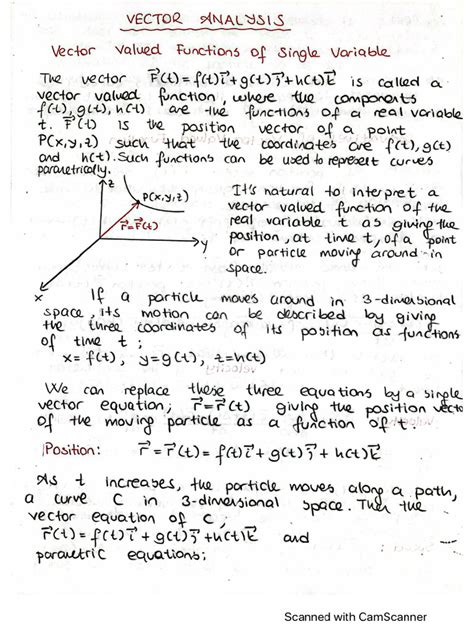 VECTOR ANALYSIS
Vector Valued Functions of Single Variable
The vector F⃗(t) = f(t)i⃗ + g(t)j⃗ + h(t)k⃗ is called a
vector valued function, where the components
f(t), g(t), h(t) are the functions of a real variable
t. F⃗(t) is the position vector of a point
P(x,y,z) such that the coordinates are f(t), g(t)
and h(t). Such functions can be used to represent curves
parametrically.
z
P(x,y,z)
r⃗=F⃗(t)
y
x
It's natural to interpret a
vector valued function of the
real variable t as giving the
position, at time t, of a point
or particle moving around in
space.
If a particle moves around in 3-dimensional
space, its motion can be described by giving
the three coordinates of its position as functions
of time t;
x= f(t), y=g(t), z=h(t)
We can replace these three equations by a single
vector equation; r⃗=r⃗(t) giving the position vecto
of the moving particle as a function of t.
Position: r⃗ = r⃗(t) = f(t)i⃗ + g(t)j⃗ + h(t)k⃗
As t increases, the particle moves along a path,
a curve C in 3-dimensional space. Then the
vector equation of C,
r⃗(t) = f(t)i⃗ + g(t)j⃗ + h(t)k⃗ and
parametric equations;
Scanned with CamScanner